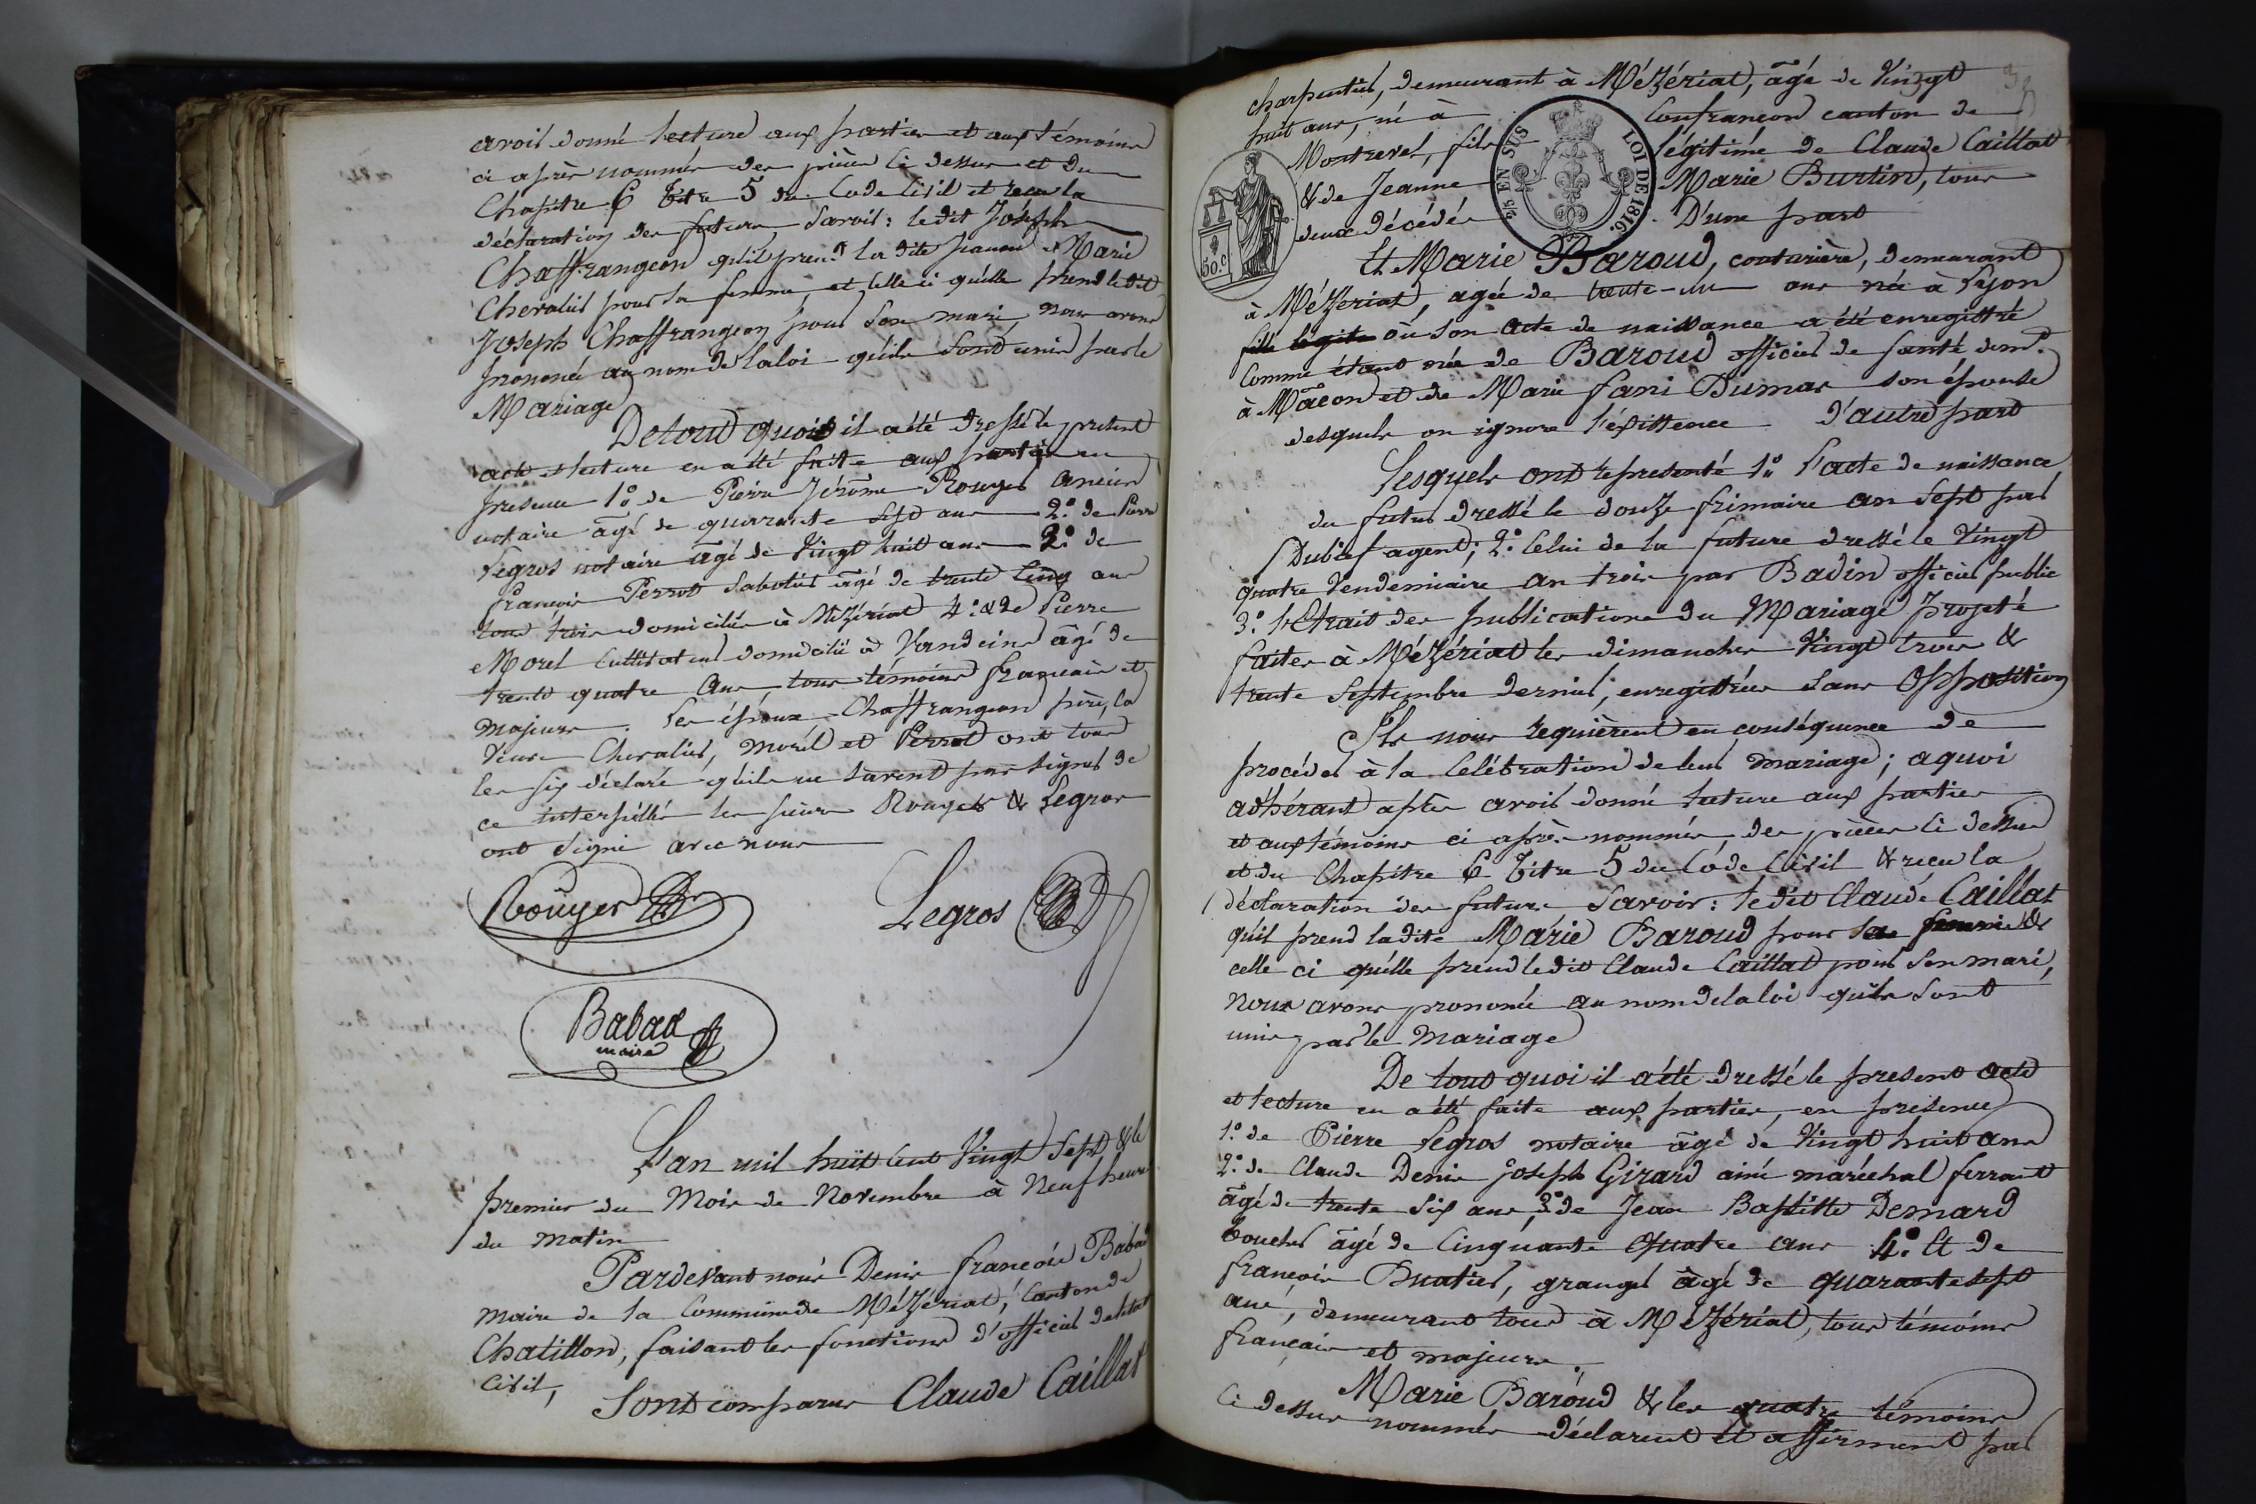 avoir donné lecture aux parties et aux témoins
ci après nommés des pièces ci dessus et du
Chapitre 6 titre 5 du Code Civil et reçu la
déclaration des futurs savoir : le dit Joseph
Chaffrangeon qu'il prend la dite Marie
Chevalier pour sa femme et celle ci qu'elle prend le dit
Joseph Chaffrangeon pour son mari nous avons
prononcé au nom de la loi qu'ils sont unis par le
Mariage
De tout quoi il a été dressé le présent
acte et lecture en a été faite aux parties en
presence 1.º de Pierre Jérôme Rouyer ancien
notaire âgé de quarante sept ans 2.º de Pierre
Legros notaire âgé de vingt huit ans 3.º de
françois Perrot sabotier âgé de trente cinq ans
tous trois domiciliés à Mézériat 4.º & de Pierre
Morel cultivateur domicilié à Vandeins âgé de
trente quatre ans, tous témoins français et
majeurs. Les époux Chaffrangeon père, la
veuve Chevalier, morel et Perrot ont tous
les six déclaré qu'ils ne savent pas signer de
ce interpellés les sieurs Rouyer & Legros
ont signé avec nous
Rouyer
Legros
Babad
maire
L'an mil huit cent vingt sept & le
premier du Mois de Novembre à neuf heures
du matin
Pardevant nous Denis françois Babad
maire de la Commune de Mézériat, Canton de
Chatillon, faisant les fonctions d'officier de l'état
Civil,
Sont comparus Claude Caillat
charpentier, demeurant à Mézériat, âgé de vingt
huit ans, né à Confrançon canton de
Montrevel, fils légitime de Claude Caillat
& de Jeanne Marie Burtin, tous
deux décédés. D'une part
EN SUS
LOI DE 1816.
50.c
Et Marie Baroud, couturière, demeurant
à Mézériat, agée de trente-un ans née à Lyon
fille légite où son acte de naissance a été enregistré
Comme étant née de Baroud officier de santé dem.t
à Mâcon et de Marie fani Dumas son épouse
desquels on ignore l'existence d'autre part
Lesquels ont représenté 1.º l'acte de naissance
du futur dressé le douze frimaire an sept par
Dubief agent; 2.º Celui de la future dressé le vingt
quatre Vendemiaire an trois par Badin officier public
3.º l'Extrait des publications du Mariage projeté
faites à Mézériat les dimanches vingt trois &
trente septembre dernier; enregistrées sans Opposition
Ils nous requièrent en conséquence de
procéder à la Celébration de leur mariage; a quoi
adhérant après avoir donné lecture aux parties
et aux témoins ci après nommés, des pièces ci dessus
et du Chapitre 6 titre 5 du Code Civil & reçu la
déclaration des futurs savoir : le dit Claude Caillat
qu'il prend ladite Marie Baroud pour sa femme &
celle ci qu'elle prend le dit Claude Caillat pour son mari,
Nous avons prononcé au nom de la loi qu'ils sont
unis par le mariage
De tout quoi il a été dressé le present acte
et lecture en a été faite aux parties, en présence
1.º de Pierre Legros notaire âgé de vingt huit ans
2.º de Claude Denis Joseph Girard ainé maréchal ferrant
âgé de trente six ans, 3.º de Jean Baptiste Demard
boucher âgé de cinquante quatre ans 4.º Et de
françois Buatier, granger âgé de quarante sept
ans, demeurant tous à Mézériat, tous témoins
français et majeurs.
Marie Baroud & les quatre témoins
ci dessus nommés déclarent et affirment par